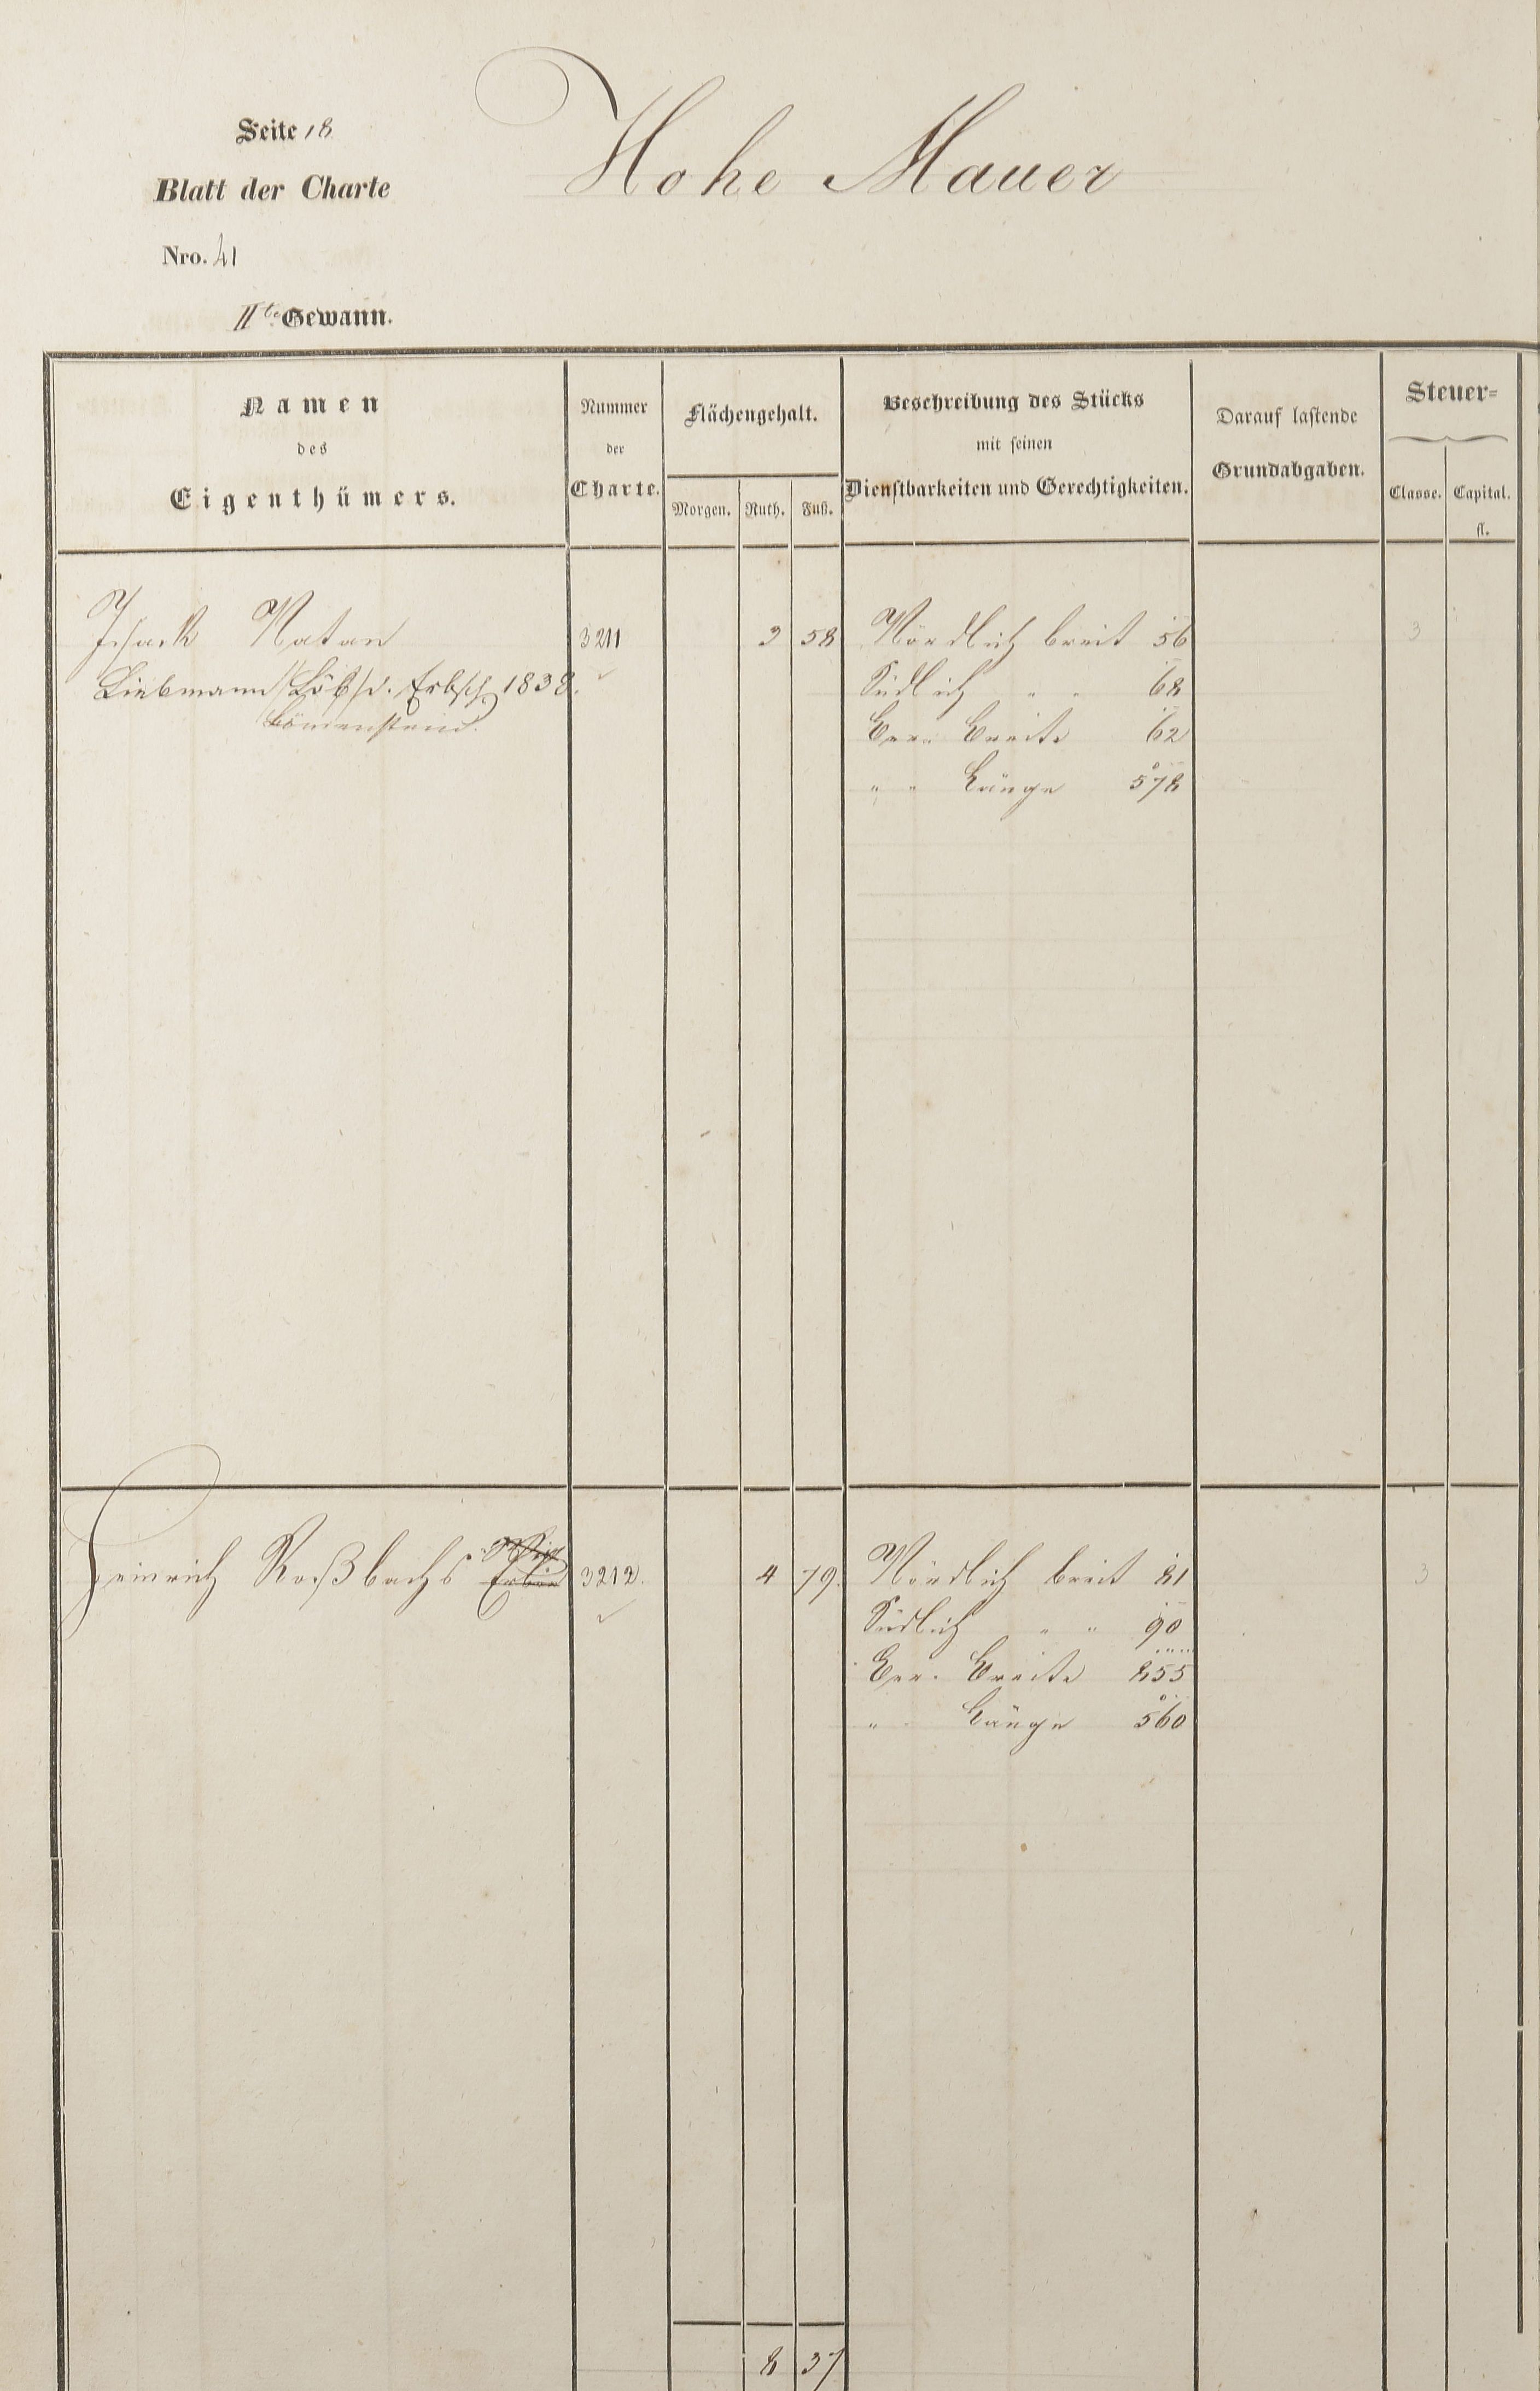 Seite 18
Hohe Mauer
Blatt der Charte
Nro. 41
IIte Gewann.
Namen
des
Eigenthümers.
Nummer
der
Charte.
Flächengehalt.
Morgen. Ruth. Fuß.
Beschreibung des Stücks
mit seinen
Dienstbarkeiten und Gerechtigkeiten.
Darauf lastende
Grundabgaben.
Steuer=
Classe. Capital.
fl.
Isaak Natan 3211 3 58 Nördlich breit 56 3
Liebmann Löb Erbsch 1838. Südlich " " 68
Löwenstein. Ber. Breite 62
" " Länge 578
Heinrich Roßbachs Erben 3212. 4 79. Nördlich breit 81 3
Südlich " " 90
Ber. Breite 855
" Länge 560
8 37